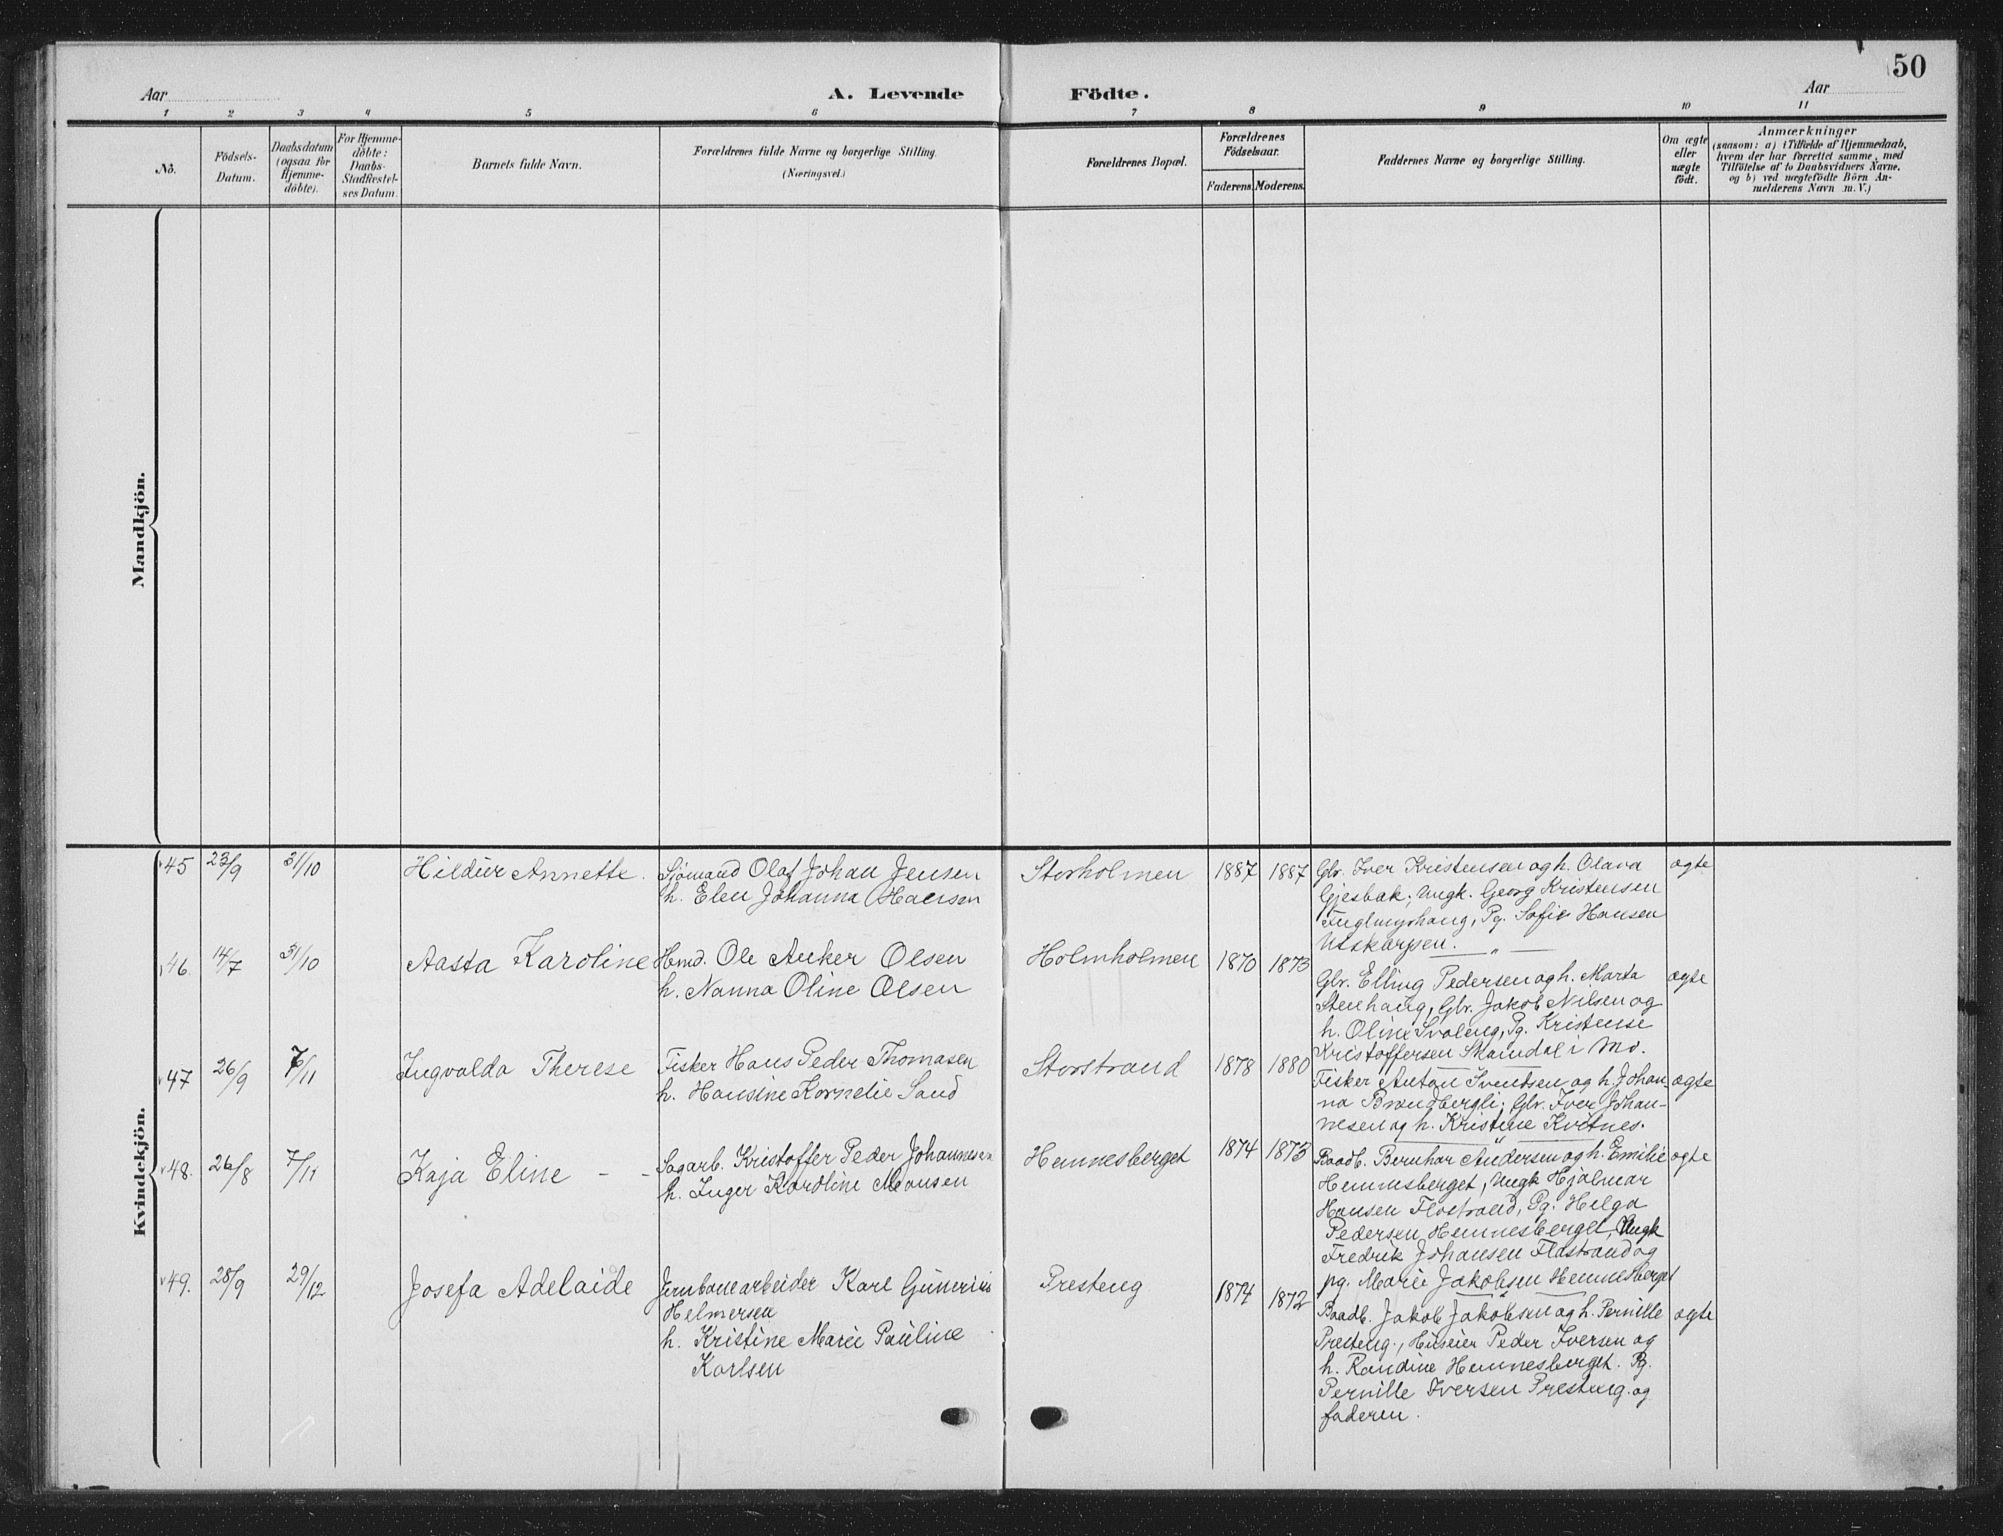 50
Aar
A. Levende
Födte.
Aar
1 2 3 4 5 6 7 8 9 10 11
No.
Födsels-
Datum.
Daabsdatum
(ogsaa for
Hjemme-
döbte).
For Hjemme-
döbte:
Daabs-
Stadfæstel-
ses Datum.
Barnets fulde Navn.
Forældrenes fulde Navne og borgerlige Stilling.
(Næringsvei.)
Forældrenes Bopæl.
Forældrenes
Födselsaar.
Faderens. Moderens.
Faddernes Navne og borgerlige Stilling.
Om ægte
eller
uægte
födt.
Anmærkninger
(saasom: a) i Tilfælde af Hjemmedaab,
hvem der har forrettet samme, med
Tilföielse af to Daabsvidners Navne.
og b) ved uægtefödte Börn An-
melderens Navn m. V.)
Mandkjön.
Kvindekjön.
45 23/9 31/10 Hildur Annette.
Sjömand Olaf Johan Jensen
h. Elen Johanna Hansen
Storholmen 1887 1887
Gbr. Iver Kristensen og h. Olava
Gjesbak; Ungk. Georg Kristensen
Pg. Sofie Hansen
Utskarpen. — " —
ægte
46 14/7 31/10 Aasta Karoline
Hemd. Ole Anker Olsen
h. Nanna Oline Olsen
Holmholmen 1870 1873
Gbr. Elling Pedersen og h. Marta
Stenhaug, Gbr. Jakob Nilsen og
h. Oline Svaleng, Pg. Kristense
Kristoffersen Skamdal i Mo.
ægte
47 26/9 7/11 Ingvalda Therese
Fisker Hans Peder Thomasen
h. Hansine Kornelie Sand
Storstrand 1878 1880
Fisker Anton Svendsen og h. Johan-
na Brendbergli; Gbr. Iver Johan-
nesen og h. Kristine Kvitnes.
— " —
ægte
48. 26/8 7/11 Kaja Eline - -
Sagarb. Kristoffer Peder Johannesen
h. Inger Karoline Monsen
Hemnesberget 1874 1873
Baadb. Bernhar Andersen og h. Emilie
Hemnesberget, Ungk Hjalmar
Hansen Flostrand, Pg. Helga
Pedersen Hemnesberget, Ungk
Fredrik Johansen Flostrand og
pg. Marie Jakobsen Hemnesberget
— " —
ægte
49. 28/9 29/12 Josefa Adelaide
Jernbanearbeider Karl Gunerius
Helmersen
h. Kristine Marie Pauline
Karlsen
Presteng 1874 1872
Baadb. Jakob Jakobsen og h. Pernille
Presteng., Huseier Peder Iversen og
h. Randine Hemnesberget. Pg.
Pernille Iversen Presteng. og
faderen.
ægte